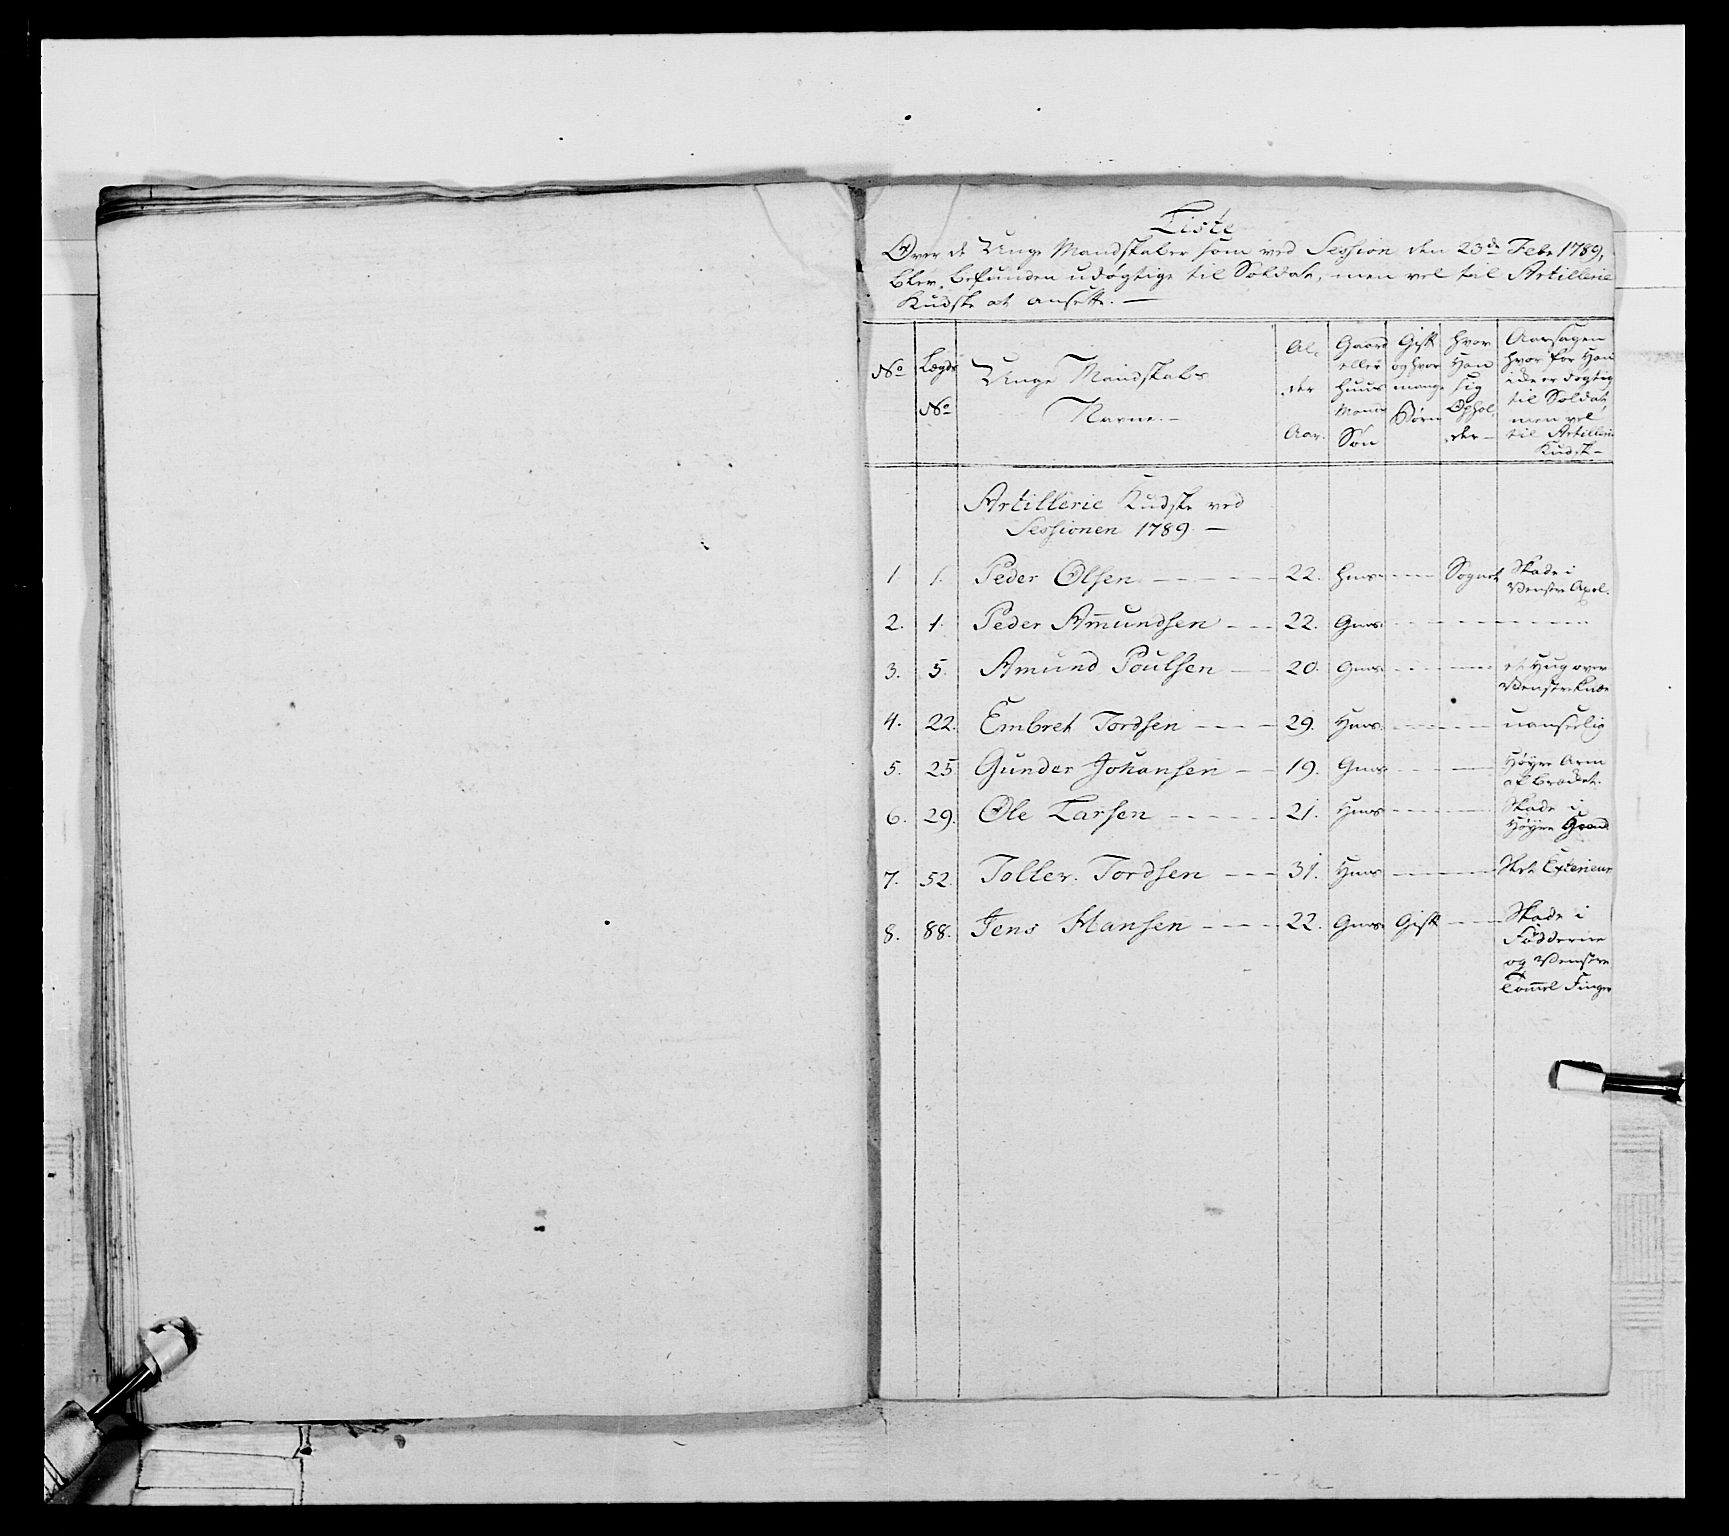 Liste
Over de Unge Mandskaber som ved Session den 23de Febr 1789,
blev befunden udøgtige til Soldat, men vel til Artillerie
Kudske at ansette. —
No
Lægds No
Unge Mandskabs Navne. —
Al- der Aar.
Gaard eller Huus Mands Søn
Gift og hvor mange Børn
Hvor Han sig Ophol- der —
Aarsagen hvor for Han icke er døgtig til Soldat men vel til Artillerie Kudsk —
Artillerie Kudske ved
Sessionen 1789 —
1 1. Peder Olsen — — — 22. Hms. — — Sognet Skade i
Venstre Axel.
2. 1. Peder Amundsen — — 22. Gms. — — —
3. 5. Amund Poulsen — 20. Gms. — — et Hug over
Venstre Knæ
4. 22. Embret Tordsen — — — 29. Hms. — — — uanseelig
5. 25 Gunder Johansen — 19. Gms. — — Høyre Arm
afbrækket.
6. 29. Ole Larsen — — — 21. Hms — — — Skade i
Høyre Haand
7. 52. Tollev Tordsen — — 31. Hms — — — Slet Exterieur
8. 88. Jens Hansen — — — 22. Gms. Gift — — Skade i
Fødderne
og Venstre
Tommel Finger